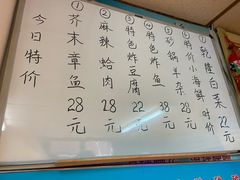 今日特价
①芥末章鱼28元
②麻辣蛤肉28元
③特色炸豆腐22元
④特色炸鱼38元
⑤砂锅羊杂28元
⑥特价小海鲜时价
⑦乾隆白菜22元